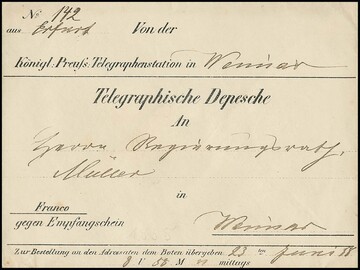 No 142
aus Erfurt Von der
Königl: Preuſs: Telegraphenstation in Weimar
Telegraphische Depesche
An
Herrn Regierungsrath,
Müller
in
Franco
gegen Empfangschein Weimar
Zur Bestellung an den Adressaten dem Boten übergeben 23 ten Juni 58
U M mittags